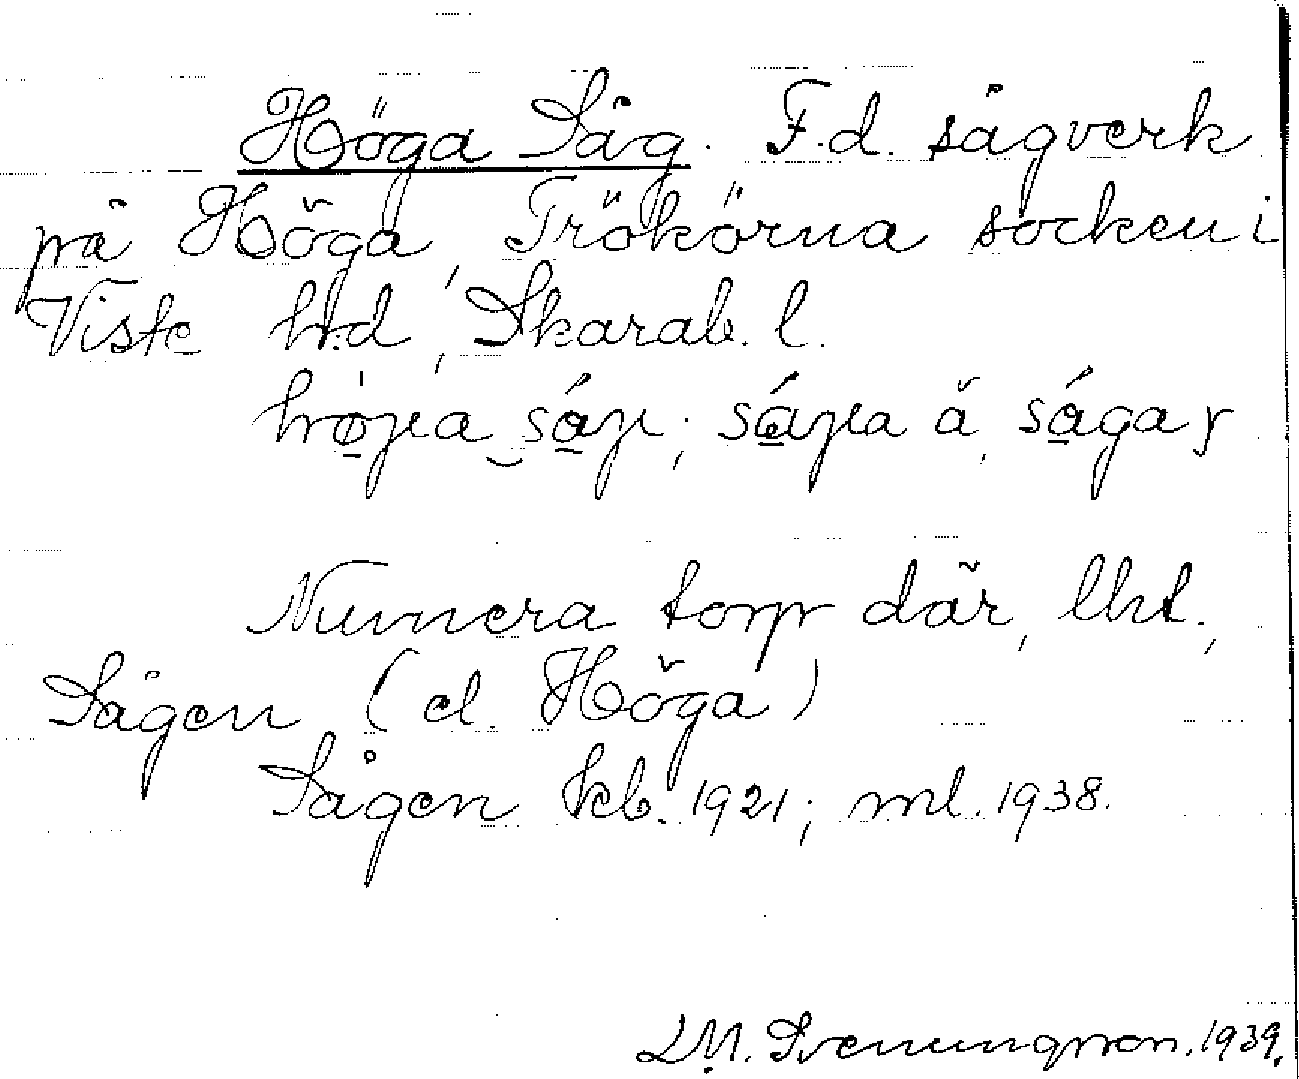 Höga Såg. F.d. sågverk
på Höga, Trökörna socken i
Viste hd, Skarab. l.
Numera torp där, lht.,
Sågen (el. Höga)
Sågen kb. 1921; ml. 1938.
LM. Svenungsson. 1939.